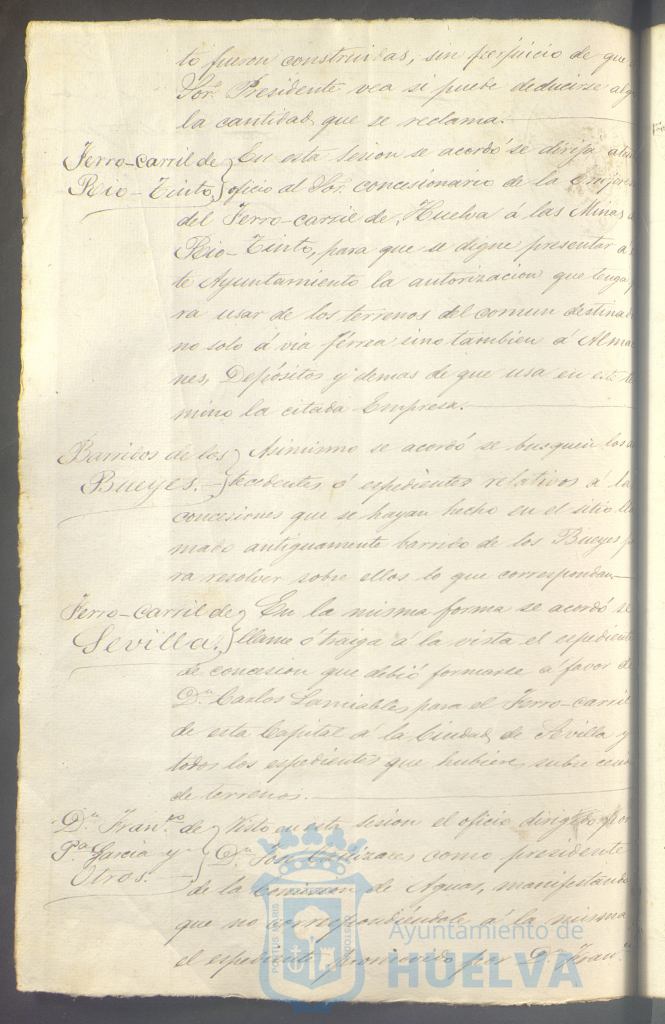 to fueron construidas, sin perjuicio de que
Sor. Presidente vea si puede deducirse alg
la cantidad que se reclama.
Ferro-carril de } En esta sesion se acordó se dirija aten
Rio-Tinto. } oficio al Sor. concesionario de la Empre
del Ferro-carril de Huelva á las Minas d
Rio-Tinto, para que se digne presentar á
te Ayuntamiento la autorizacion que tenga p
ra usar de los terrenos del comun destinad
no solo á via férrea sino tambien á Alma
nes, Depósitos y demas de que usa en este te
mino la citada Empresa.
Barridos de los } Asimismo se acordó se busquen los
Bueyes. } tecedentes ó espedientes relativos á la
concesiones que se hayan hecho en el sitio lla
mado antiguamente barrido de los Bueyes p
ra resolver sobre ellos lo que corresponda.
Ferro-carril de } En la misma forma se acordó se
Sevilla. } llame ó traiga á la vista el espediente
de concesion que debió formarse á favor de
Dn. Carlos Lamiable, para el Ferro-carril
de esta Capital á la Ciudad de Sevilla y
todos los espedientes que hubiere sobre
de terrenos.
Dn. Franco. de } Visto en esta sesion el oficio dirigido por
Pa. Garcia y } Dn. José como presidente
Otros. de la Comision de Aguas, manifestando
que no correspondiéndole á la misma
el espediente promovido por D. Fran
PORTUS MARIS
Ayuntamiento de
HUELVA